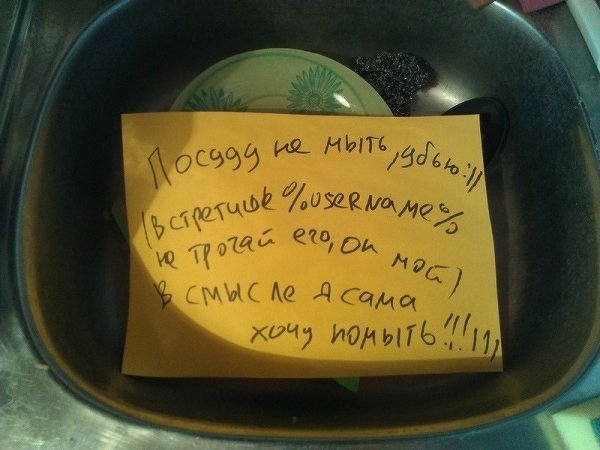 Посуду не мыть, убью:))
(встретишь %username%
не трогай его, он мой)
В смысле я сама
хочу помыть!!!)))